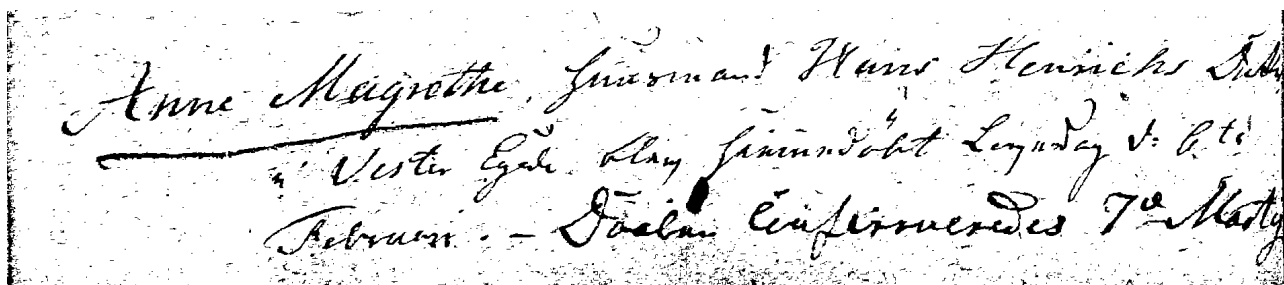 Anne Magrethe, Huusmand Hans Henrichs Datter
i Vester Egede blev hiemmedöbt Løverdag d: 6te
Februari. – Daaben Confirmeredes 7de Marty